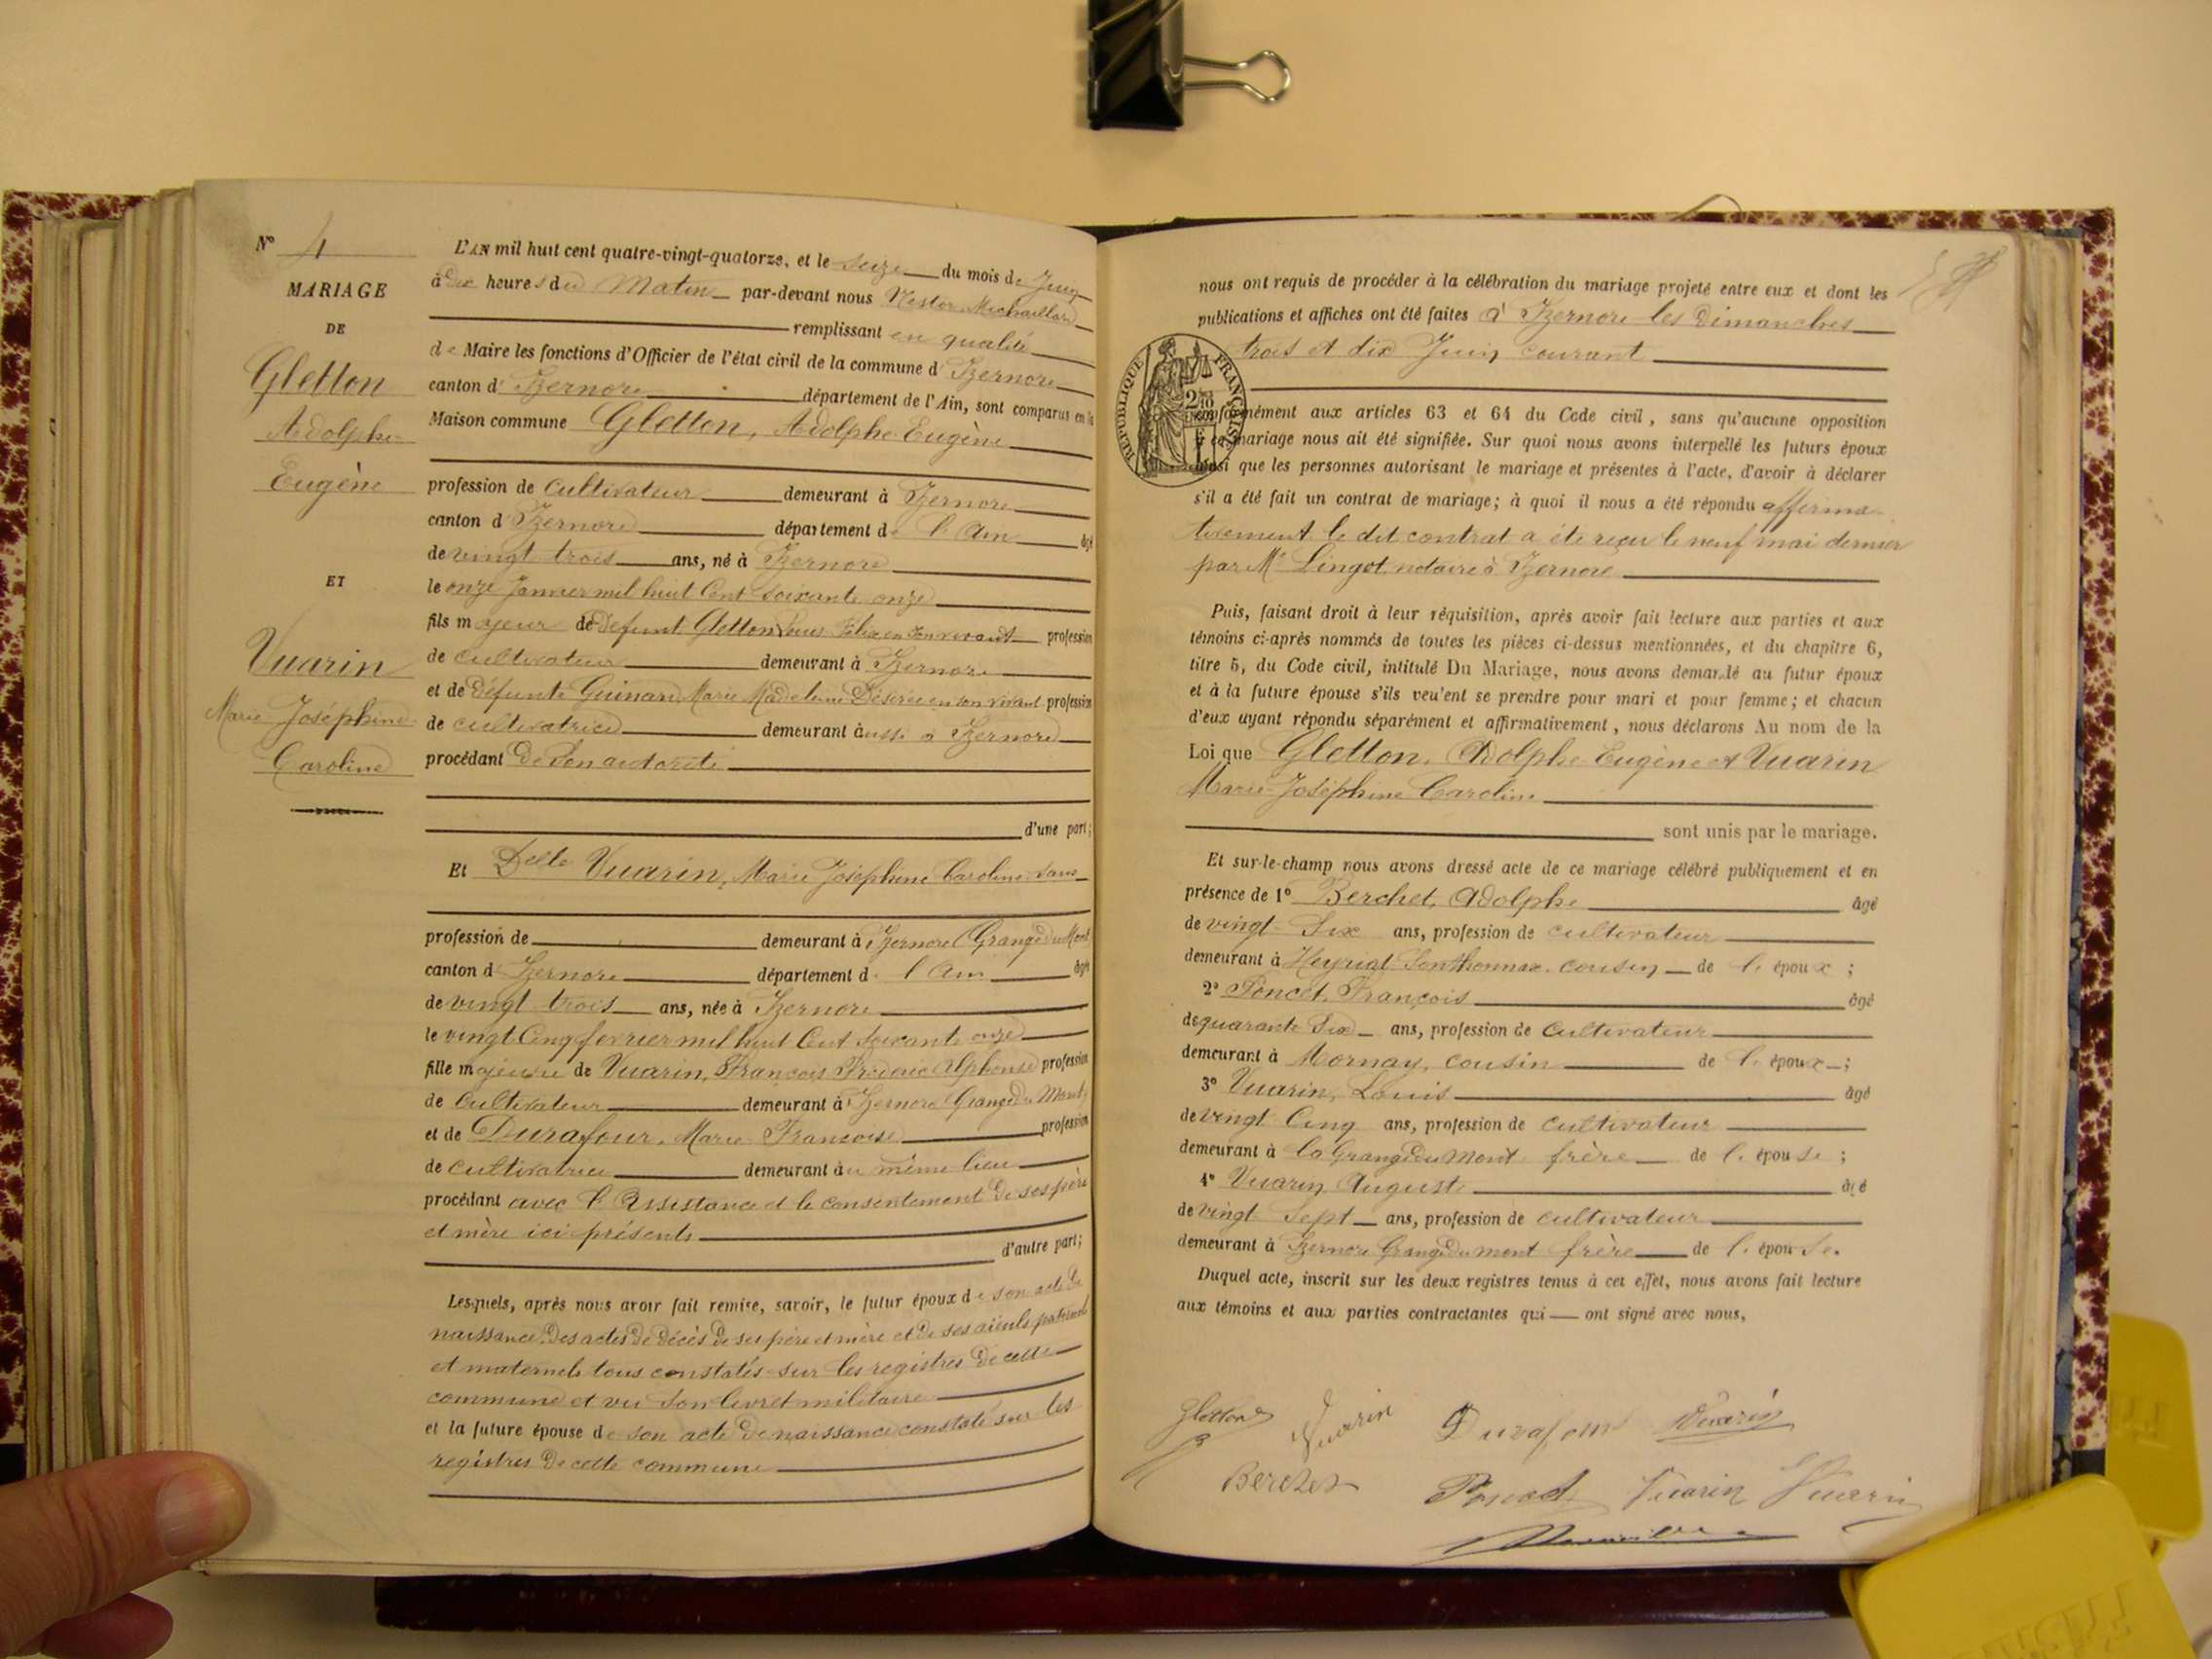 N° 4
MARIAGE
DE
Gletton
Adolphe
Eugène
ET
Vuarin
Marie Joséphine
Caroline
L'AN mil huit cent quatre-vingt-quatorze, et le seize du mois de Juin
à dix heures du Matin par-devant nous Nestor Michaillard
remplissant en qualité
de Maire les fonctions d'Officier de l'état civil de la commune d'Izernore
canton d'Izernore département de l'Ain, sont comparus en la
Maison commune Gletton, Adolphe Eugène
profession de cultivateur demeurant à Izernore
canton d'Izernore département de l'Ain âgé
de vingt trois ans, né à Izernore
le onze Janvier mil huit Cent soixante onze
fils majeur de défunt Gletton Félix en son vivant profession
de cultivateur demeurant à Izernore
et de défunte Guinand Marie Madeleine Désirée en son vivant profession
de cultivatrice demeurant aussi à Izernore
procédant de son autorité
d'une part;
Et Delle Vuarin, Marie Joséphine Caroline sans
profession de demeurant à Izernore (Grange du Mont
canton d'Izernore département de l'Ain âgée
de vingt trois ans, née à Izernore
le vingt Cinq février mil huit Cent soixante onze
fille majeure de Vuarin, François Frédéric Alphonse profession
de Cultivateur demeurant à Izernore Grange du Mont
et de Durafour, Marie Françoise profession
de cultivatrice demeurant au même lieu
procédant avec l'assistance et le consentement de ses père
et mère ici présents
d'autre part;
Lesquels, après nous avoir fait remise, savoir, le futur époux de son acte de
naissance, des actes de décès de ses père et mère et de ses aïeuls paternels
et maternels tous constatés sur les registres de cette
commune et vu son livret militaire
et la future épouse de son acte de naissance constaté sur les
registres de cette commune
nous ont requis de procéder à la célébration du mariage projeté entre eux et dont les
publications et affiches ont été faites à Izernore les dimanches
trois et dix Juin courant
RÉPUBLIQUE FRANÇAISE
conformément aux articles 63 et 64 du Code civil, sans qu'aucune opposition
à ce mariage nous ait été signifiée. Sur quoi nous avons interpellé les futurs époux
ainsi que les personnes autorisant le mariage et présentes à l'acte, d'avoir à déclarer
s'il a été fait un contrat de mariage; à quoi il nous a été répondu affirma-
tivement le dit contrat a été reçu le neuf mai dernier
par Me Lingot notaire à Izernore
Puis, faisant droit à leur réquisition, après avoir fait lecture aux parties et aux
témoins ci-après nommés de toutes les pièces ci-dessus mentionnées, et du chapitre 6,
titre 5, du Code civil, intitulé Du Mariage, nous avons demandé au futur époux
et à la future épouse s'ils veulent se prendre pour mari et pour femme; et chacun
d'eux ayant répondu séparément et affirmativement, nous déclarons Au nom de la
Loi que Gletton, Adolphe Eugène et Vuarin
Marie Joséphine Caroline
sont unis par le mariage.
Et sur-le-champ nous avons dressé acte de ce mariage célébré publiquement et en
présence de 1° Berchet, Adolphe âgé
de vingt Six ans, profession de cultivateur
demeurant à Heyriat Sonthonnax, cousin de l'époux;
2° Poncet, François âgé
de quarante Six ans, profession de Cultivateur
demeurant à Mornay, cousin de l'époux;
3° Vuarin, Louis âgé
de vingt Cinq ans, profession de cultivateur
demeurant à la Grange du Mont frère de l'épouse;
4° Vuarin Auguste âgé
de vingt Sept ans, profession de cultivateur
demeurant à Izernore Grange du mont frère de l'épouse.
Duquel acte, inscrit sur les deux registres tenus à cet effet, nous avons fait lecture
aux témoins et aux parties contractantes qui ont signé avec nous,
Gletton Vuarin Durafour Vuarin
Berchet Poncet Vuarin Vuarin